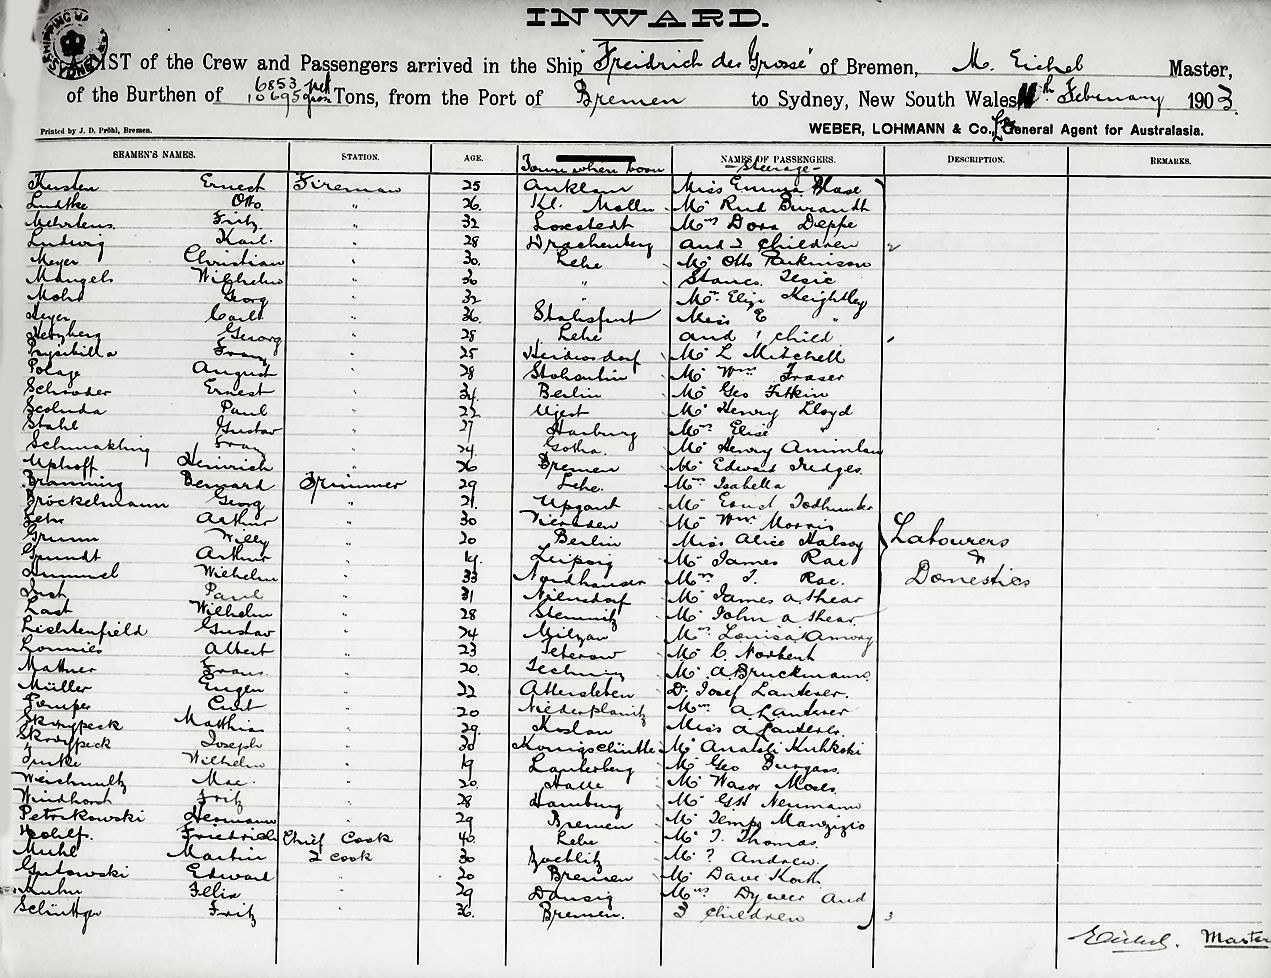 INWARD.
SHIPPING MA SYDNEY
LIST of the Crew and Passengers arrived in the Ship "Freidrich der Grosse" of Bremen, M. Eichel Master,
of the Burthen of 6853 net 10695 gross Tons, from the Port of Bremen to Sydney, New South Wales, 11th February 1903.
Printed by J. D. Pröhl, Bremen.
WEBER, LOHMANN & Co., Ld General Agent for Australasia.
SEAMEN'S NAMES. STATION. AGE. Town where born NAMES OF PASSENGERS. DESCRIPTION. REMARKS.
Steerage
Kersten Ernest Fireman 25 Anklam Miss Emma Blase
Ludtke Otto " 26 Kl. Molln Mr Rud Burandt
Mehrtens Fritz " 32 Loxstedt Mrs Dora Deppe
Ludwig Karl " 28 Drachenberg and 2 children 2
Meyer Christian " 30 Lehe Mr Otto Parkinson
Mangels Wilhelm " 30 "
Mohr Georg " 32 " Mrs Eliza Keightley
Meyer Carl " 36 Miss E "
Herzberg Georg " 28 Lehe and 1 child 1
Franz " 25 Mr L Mitchell
August " 28 Mr Wm Fraser
Schröder Ernest " 34 Berlin Mr Geo Fitkin
Paul " 22 Ujest Mr Henry Lloyd
Stahl Gustav " 27 Harburg Mrs Elise "
Schmakling Franz " 24 Gotha Mr Henry
Uphoft Heinrich " 26 Bremen Mr Edward Judges
Branning Bernard Trimmer 29 Lehe Mrs Isabella "
Bröckelmann Georg " 21 Upgant Mr Ernst Todhunter
Arthur " 30 Viersden Mr Wm Morris
Grunn Willy " 20 Berlin Miss Alice Halsey Labourers
Gundt Arthur " 19 Leipzig Mr James Rae &
Hummel Wilhelm " 33 Nordhausen Mrs J. Rae. Domestics
Paul " 31 Niensdorf Mr James a Shear
Last Wilhelm " 28 Stemnitz Mr John a Shear
Lichtenfield Gustav " 24 Milzan Mrs Louisa Amory
Lonnies Albert " 23 Teterow Mr C Norbert
Mattner Frans " 20 Mr A Bruckmann
Müller Eugen " 22 Attersleben Dr Josef Lanterer.
Curt " 20 Niederplanitz Mrs A Lanterer
Skorypeck Matthias " 29 Koslau Miss A Lanterer
Skorypeck Joseph " 20 Königshütte Mr Anatoli Kuhkoki
Wilhelm " 19 Lauterberg Mr Geo Burgass
Weishmultz Max " 20 Halle Mr Wasor Moses
Windhorst Fritz " 28 Hamburg Mr Neumann
Petrikowski Hermann " 29 Bremen Mr Tempo Mangizio
Friedrich Chief Cook 40 Lehe Mr T. Thomas
Muhl Martin 2 cook 30 Zoeblitz Mr ? Andrew
Gutowski Edward " 20 Bremen Mr Dave Korth
Kuhn Felix " 29 Danzig Mrs Dyneer And
Schüttger Fritz " 36 Bremen. 3 Children 3
Eichel. Master